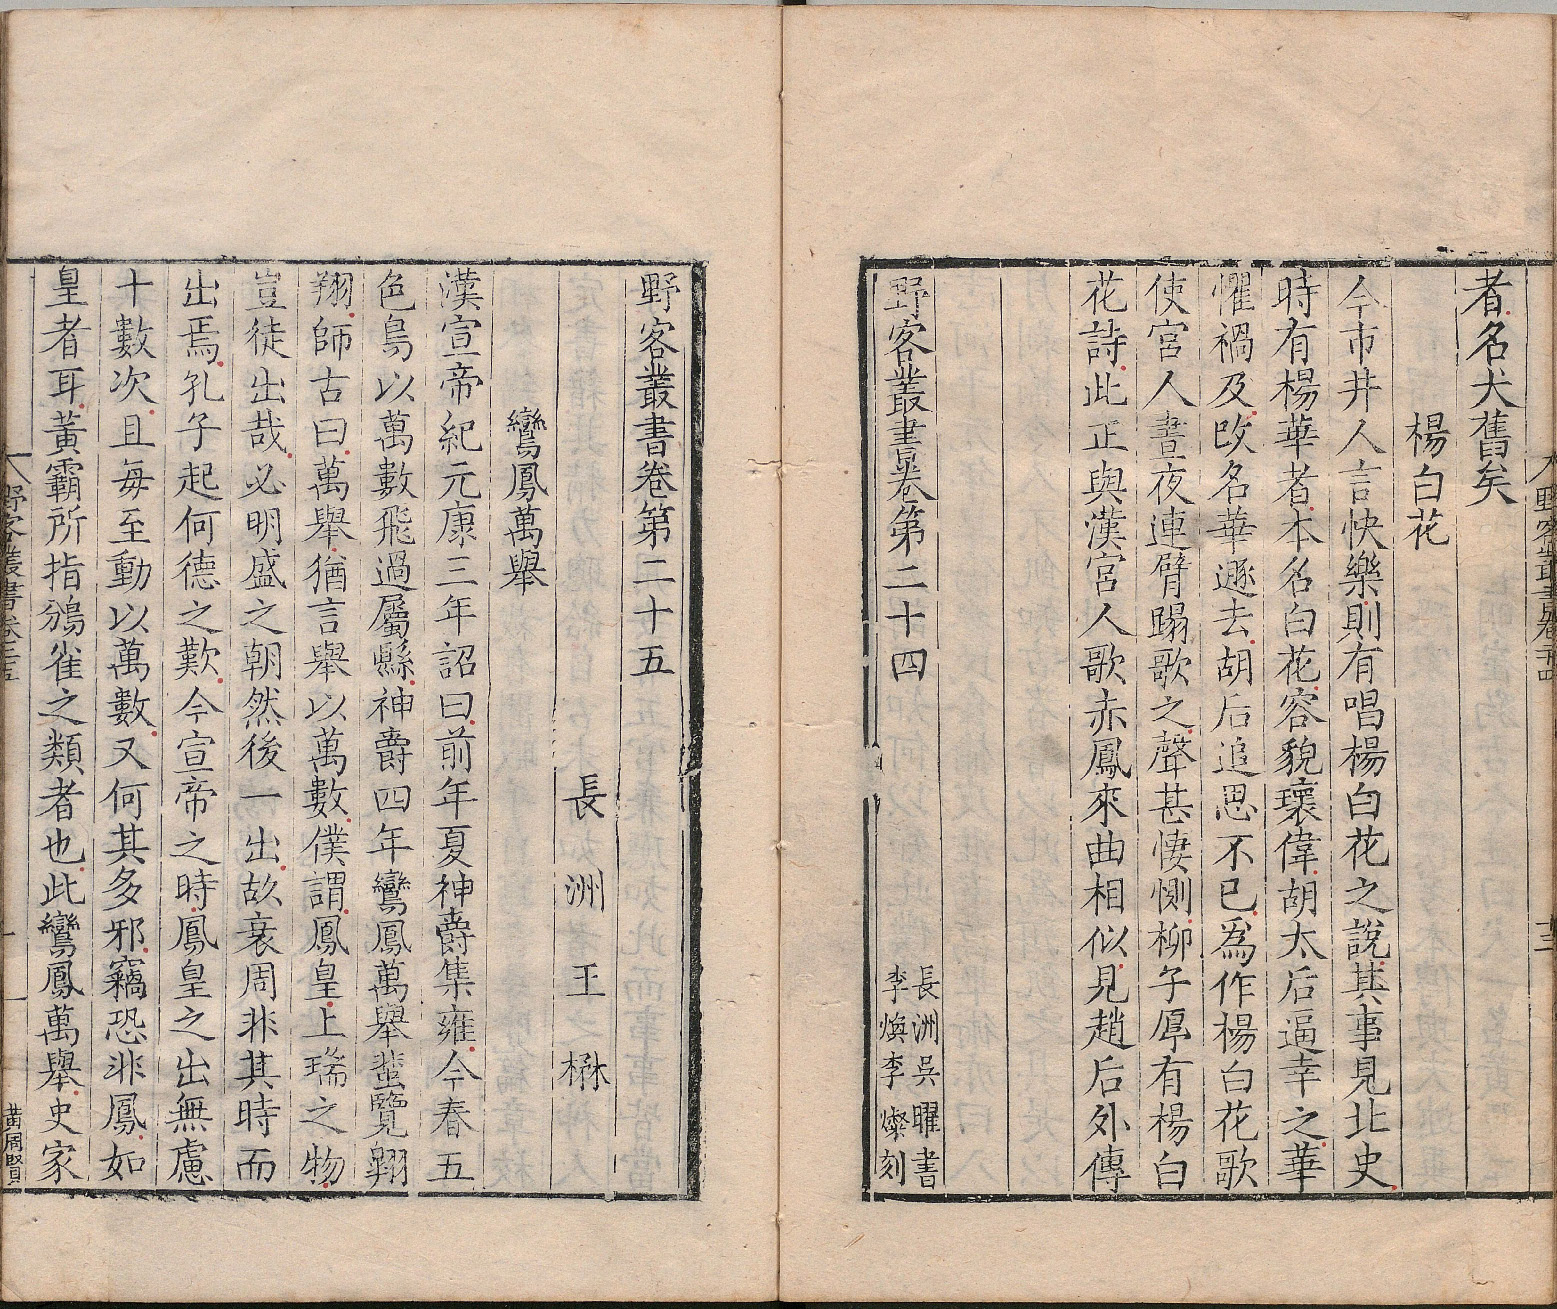 野客叢書卷二十四
十三
者名犬舊矣
楊白花
今市井人言快樂則有唱楊白花之說其事見北史
時有楊華者本名白花容貌瓌偉胡太后逼幸之華
懼禍及改名華遯去胡后追思不已爲作楊白花歌
使宮人晝夜連臂蹋歌之聲甚悽惻柳子厚有楊白
花詩此正與漢宮人歌赤鳳來曲相似見趙后外傳
野客叢書卷第二十四
長洲吳曜書
李煥李燦刻
野客叢書卷第二十五
長洲王楙
鸞鳳萬舉
漢宣帝紀元康三年詔曰前年夏神爵集雍今春五
色鳥以萬數飛過屬縣神爵四年鸞鳳萬舉蜚覽翱
翔師古曰萬舉猶言舉以萬數僕謂鳳皇上瑞之物
豈徒出哉必明盛之朝然後一出故衰周非其時而
出焉孔子起何德之歎今宣帝之時鳳皇之出無慮
十數次且每至動以萬數又何其多邪竊恐非鳳如
皇者耳黃霸所指鶡雀之類者也此鸞鳳萬舉史家
野客叢書卷二十五
一
黃周賢